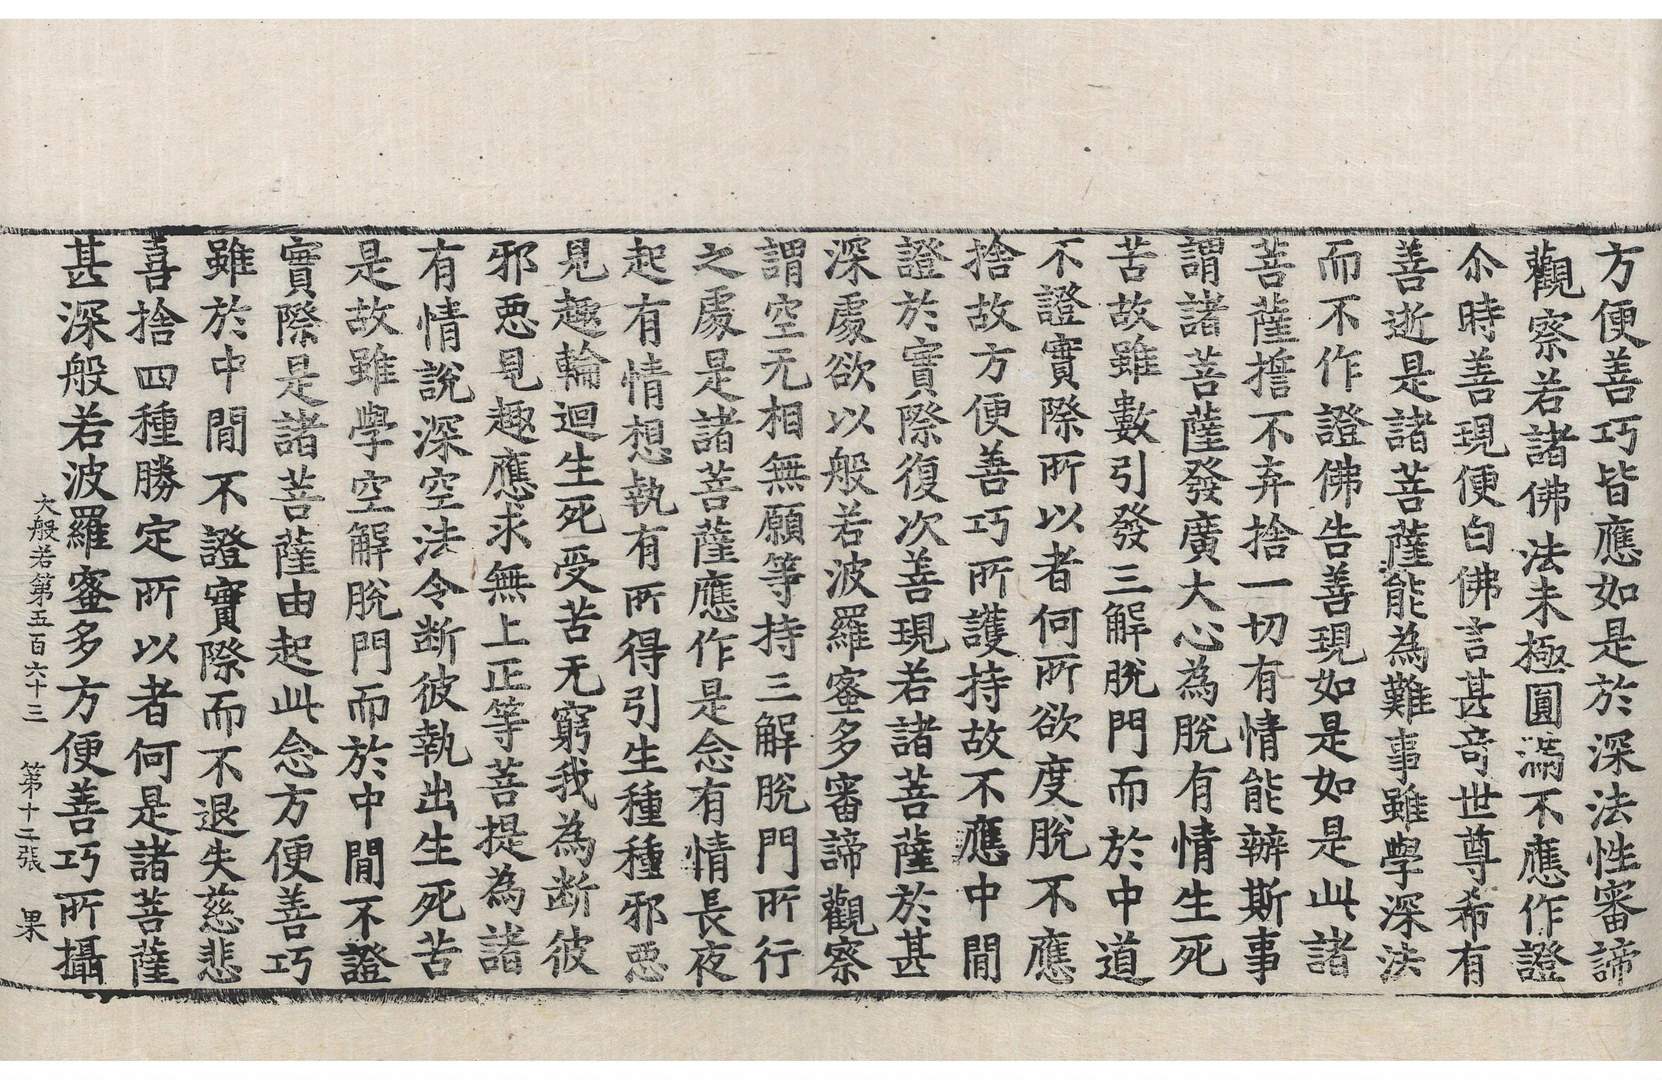 方便善巧皆應如是於深法性審諦
觀察若諸佛法未極圓滿不應作證
尒時善現便白佛言甚奇世尊希有
善逝是諸菩薩能為難事雖學深法
而不作證佛告善現如是如是此諸
菩薩擔不弃捨一切有情能辦斯事
謂諸菩薩發廣大心為脫有情生死
苦故雖數引發三解脫門而於中道
不證實際所以者何所欲度脫不應
捨故方便善巧所護持故不應中閒
證於實際復次善現若諸菩薩於甚
深處欲以般若波羅蜜多審諦觀察
謂空无相無願等持三解脫門所行
之處是諸菩薩應作是念有情長夜
起有情想執有所得引生種種邪惡
見趣輪迴生死受苦无窮我為断彼
邪惡見趣應求無上正等菩提為諸
有情說深空法令断彼執出生死苦
是故雖學空解脫門而於中閒不證
實際是諸菩薩由起此念方便善巧
雖於中閒不證實際而不退失慈悲
喜捨四種勝定所以者何是諸菩薩
甚深般若波羅蜜多方便善巧所攝
大般若第五百六十三 第十二張 果